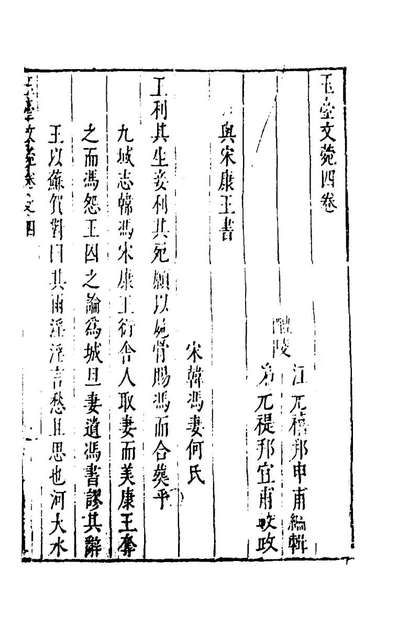 玉臺文菀四卷
醴陵
江元禧邦申甫編輯
弟元禔邦宜甫校政
與宋康王書
宋韓馮妻何氏
王利其生妾利其死願以屍骨賜馮而合塟乎
九域志韓馮宋康王衍舍人取妻而美康王奪
之而馮怨王囚之論爲城旦妻遺馮書謬其辭
王以蘇賀對曰其雨淫淫言愁且思也河大水
玉臺文菀卷之四